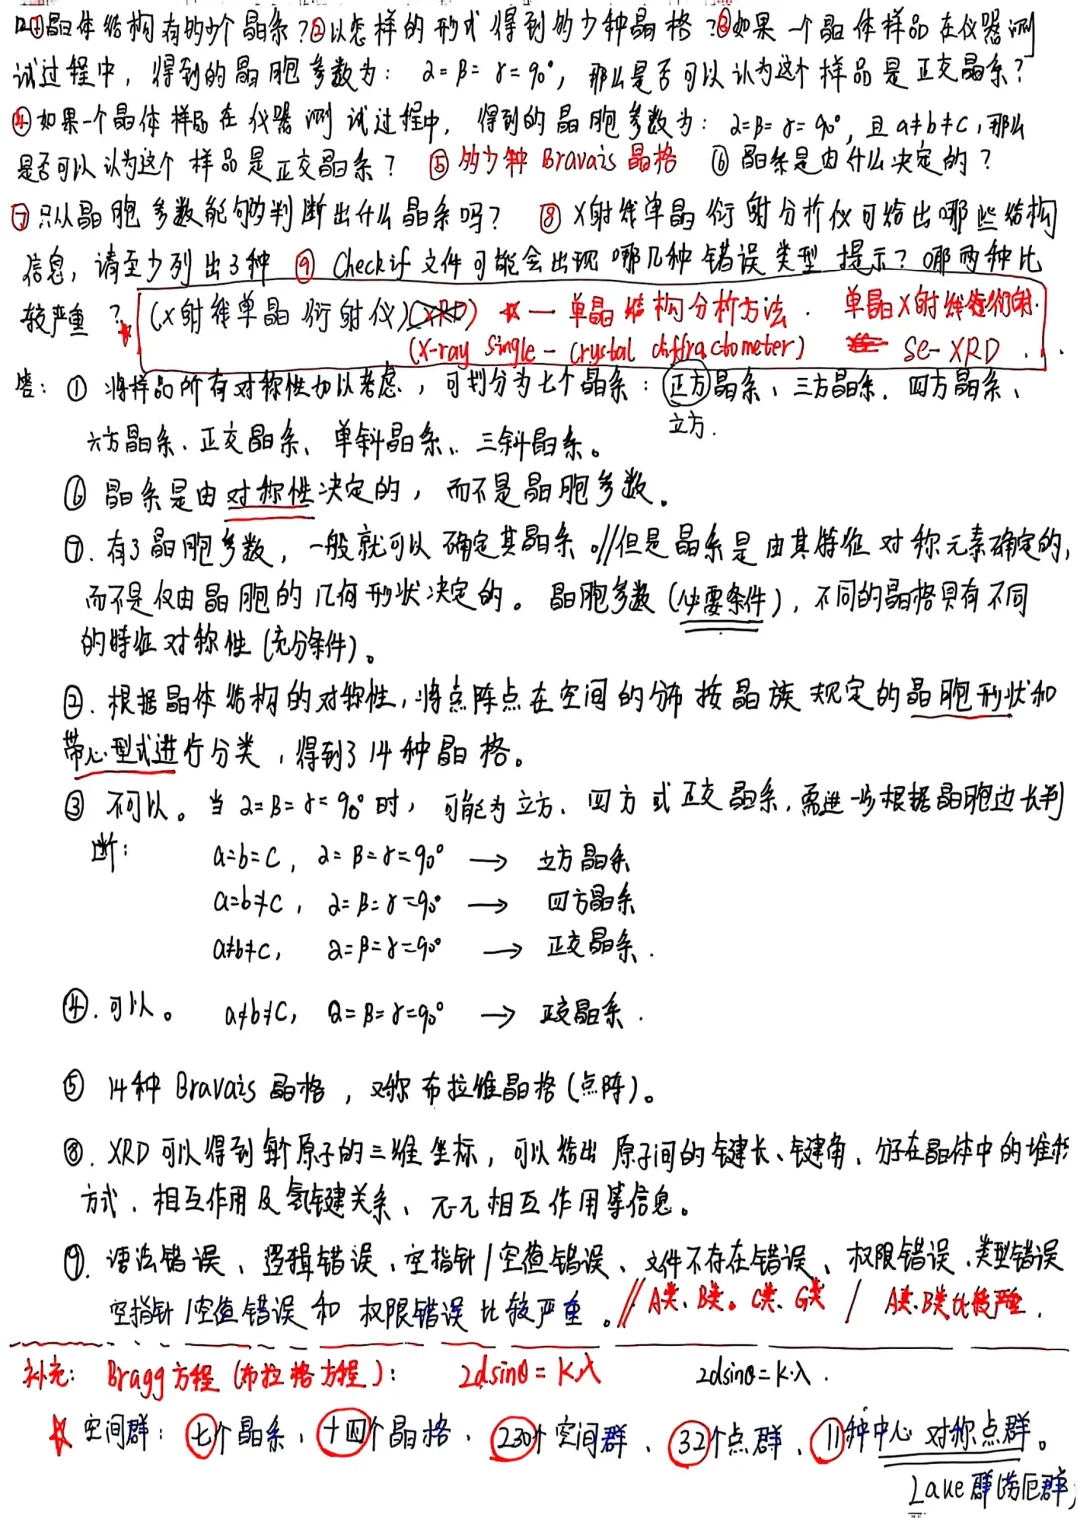 ①晶体结构有多少个晶系?②以怎样的形式得到多少种晶格?③如果一个晶体样品在仪器测
试过程中，得到的晶胞参数为: α=β=γ=90°，那么是否可以认为这个样品是正交晶系?
④如果一个晶体样品在仪器测试过程中，得到的晶胞参数为: α=β=γ=90°，且a≠b≠c，那么
是否可以认为这个样品是正交晶系? ⑤多少种Bravais晶格 ⑥晶系是由什么决定的?
⑦只从晶胞参数能够判断出什么晶系吗? ⑧X射线单晶衍射分析仪可给出哪些结构
信息，请至少列出3种 ⑨Checkcif文件可能会出现哪几种错误类型提示?哪两种比
较严重? (X射线单晶衍射仪)(XRD) ☆一单晶结构分析方法. 单晶X射线衍射.
(X-ray Single-Crystal diffractometer) SC-XRD.
答: ①将样品所有对称性加以考虑，可划分为七个晶系: 正方晶系、三方晶系、四方晶系、
立方.
六方晶系、正交晶系、单斜晶系、三斜晶系。
⑥晶系是由对称性决定的，而不是晶胞参数。
⑦.有3晶胞参数，一般就可以确定其晶系。//但是晶系是由其特征对称元素确定的,
而不是仅由晶胞的几何形状决定的。晶胞参数(必要条件)，不同的晶格具有不同
的特征对称性(充分条件)。
②.根据晶体结构的对称性，将点阵点在空间的分布按晶族规定的晶胞形状和
带心型式进行分类，得到3 14种晶格。
③不可以。当α=β=γ=90°时，可能为立方、四方或正交晶系，需进一步根据晶胞边长判
断:
a=b=c, α=β=γ=90° → 立方晶系
a=b≠c, α=β=γ=90° → 四方晶系
a≠b≠c, α=β=γ=90° → 正交晶系.
④.可以。 a≠b≠c, α=β=γ=90° → 正交晶系.
⑤ 14种Bravais晶格，又称布拉维晶格(点阵)。
⑧.XRD可以得到每个原子的三维坐标，可以给出原子间的键长、键角、分子在晶体中的堆积
方式、相互作用及氢键关系、π-π相互作用等信息。
⑨.语法错误、逻辑错误、空指针/空值错误、文件不存在错误、权限错误、类型错误
空指针/空值错误和权限错误比较严重。//A类、B类。C类、G类 / A类、B类比较严重.
补充: Bragg方程(布拉格方程): 2dsinθ=Kλ 2dsinθ=K·λ.
☆空间群: 七个晶系、十四个晶格、230个空间群、32个点群、11种中心对称点群。
Laue群(劳厄群)